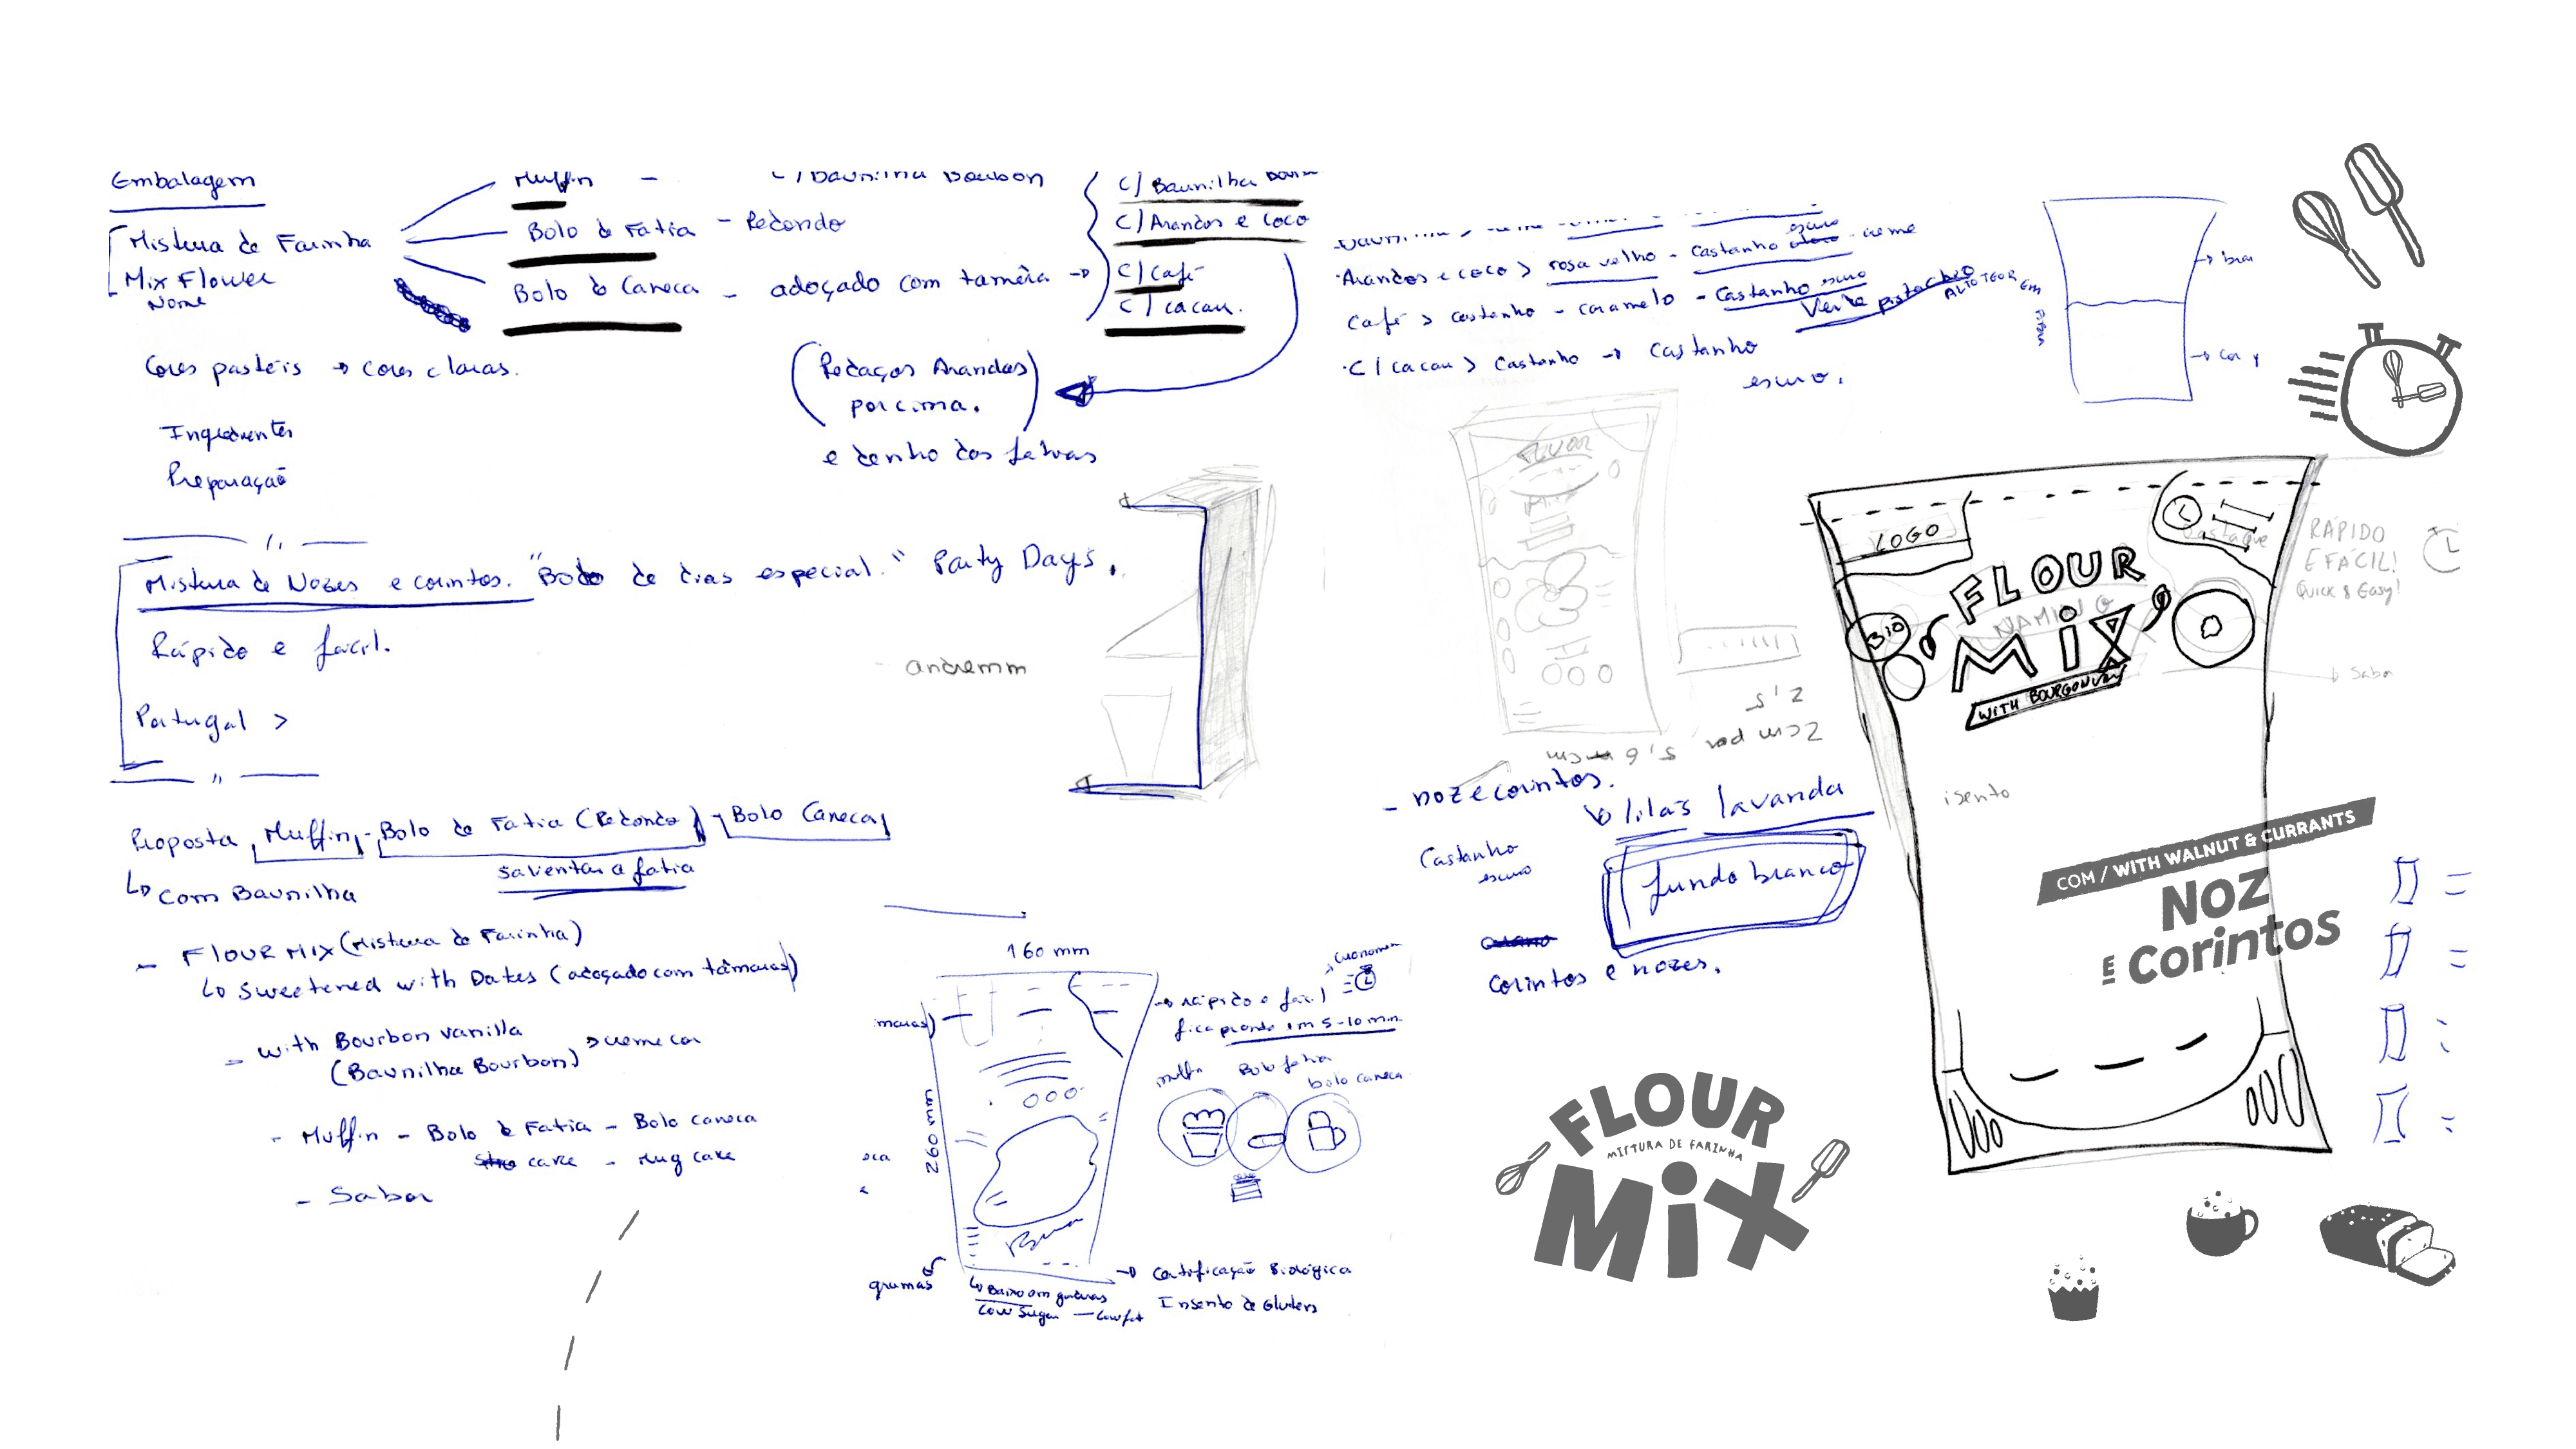 Embalagem
Mistura de Farinha
Mix Flower
Nome
Muffin -
Bolo de Fatia - Redondo
Bolo de Caneca - adoçado com tamêra →
C/ Baunilha
C/ Arandos e Coco
C/ Café
C/ Cacau.
Cores pasteis → cores claras.
(Pedaços Arandos)
por cima.
e denho das fatias
Ingredientes
Preparação
Arandos e coco > rosa velho - Castanho escuro - creme
Café > castanho - caramelo - Castanho escuro
Verde pistachio
ALTO TEOR EM
· C/ Cacau > Castanho → Castanho
escuro.
→ cor
Mistura de Nozes e corintos. "Bolo de dias especial." Party Days.
Rápido e facil.
Portugal >
andremm
FLOUR
MIX
2,5
2cm por 5,6 cm
LOGO
Destaque
RÁPIDO
E FÁCIL!
Quick & Easy!
FLOUR
NAMING
MiX
BIO
WITH BOURGON
Sabor
isento
- noz e corintos.
↳ lilás lavanda
Castanho
escuro
fundo branco
Corintos e nozes.
COM / WITH WALNUT & CURRANTS
NOZ
E Corintos
Proposta Muffin - Bolo de Fatia (Redondo) - Bolo Caneca
↳ Com Baunilha
- FLOUR MIX (Mistura de Farinha)
↳ Sweetened with Dates (adoçado com tâmaras)
- with Bourbon vanilla
(Baunilha Bourbon) > creme cor
- Muffin - Bolo de Fatia - Bolo caneca
cake - Mug cake
- Sabor
160 mm
260 mm
→ rápido e fácil
fica pronto em 5-10 min.
muffin
Bolo fatia
bolo caneca
gramas
↳ Baixo em
Low Sugar - Low fat
→ Certificação Biológica
Insento de Glutens
FLOUR
MISTURA DE FARINHA
MiX